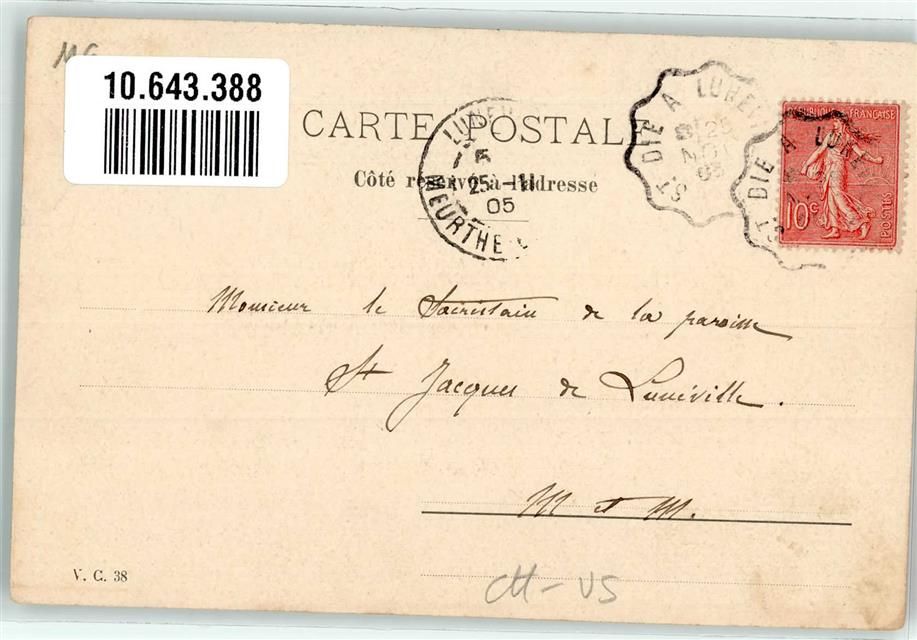 10.643.388
CARTE POSTALE
Côté réservé à l'adresse
LUNEV
5
25-11
05
MEURTHE
ST DIE A LUNEV
25
NOV
05
ST DIE A LUN
REPUBLIQUE FRANÇAISE
10c
POSTES
Monsieur le Sacristain de la paroisse
St Jacques de Lunéville.
M et M.
V. C. 38